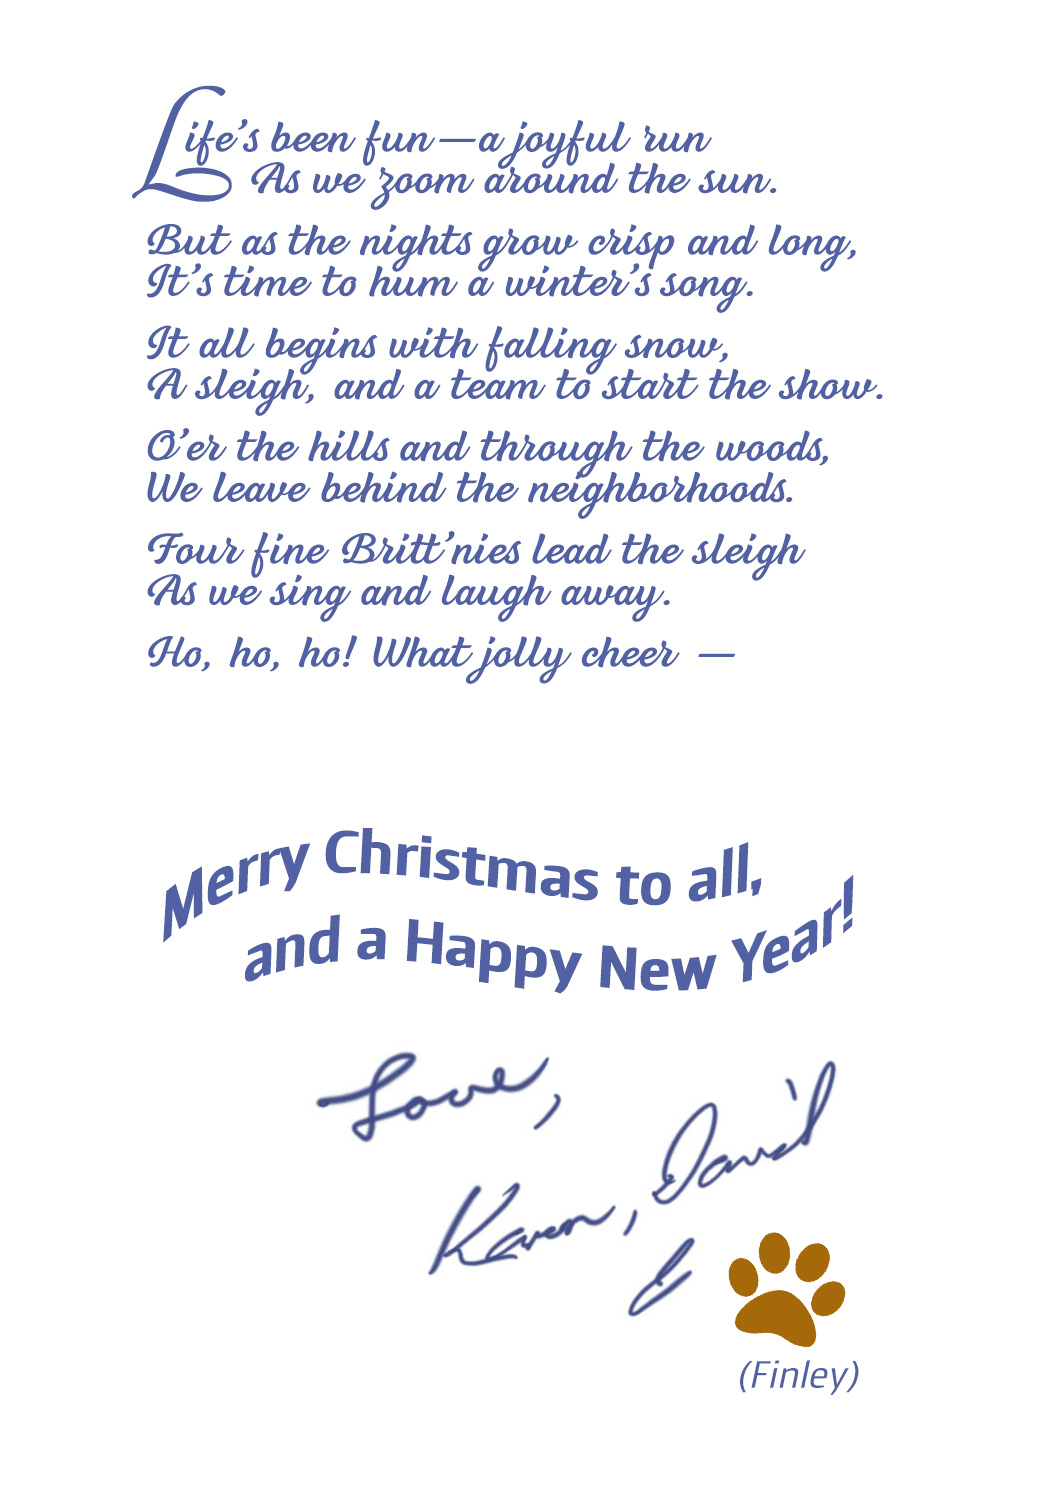 Life's been fun—a joyful run
As we zoom around the sun.
But as the nights grow crisp and long,
It's time to hum a winter's song.
It all begins with falling snow,
A sleigh, and a team to start the show.
O'er the hills and through the woods,
We leave behind the neighborhoods.
Four fine Britt'nies lead the sleigh
As we sing and laugh away.
Ho, ho, ho! What jolly cheer —
Merry Christmas to all,
and a Happy New Year!
Love,
Karen, David
&
(Finley)